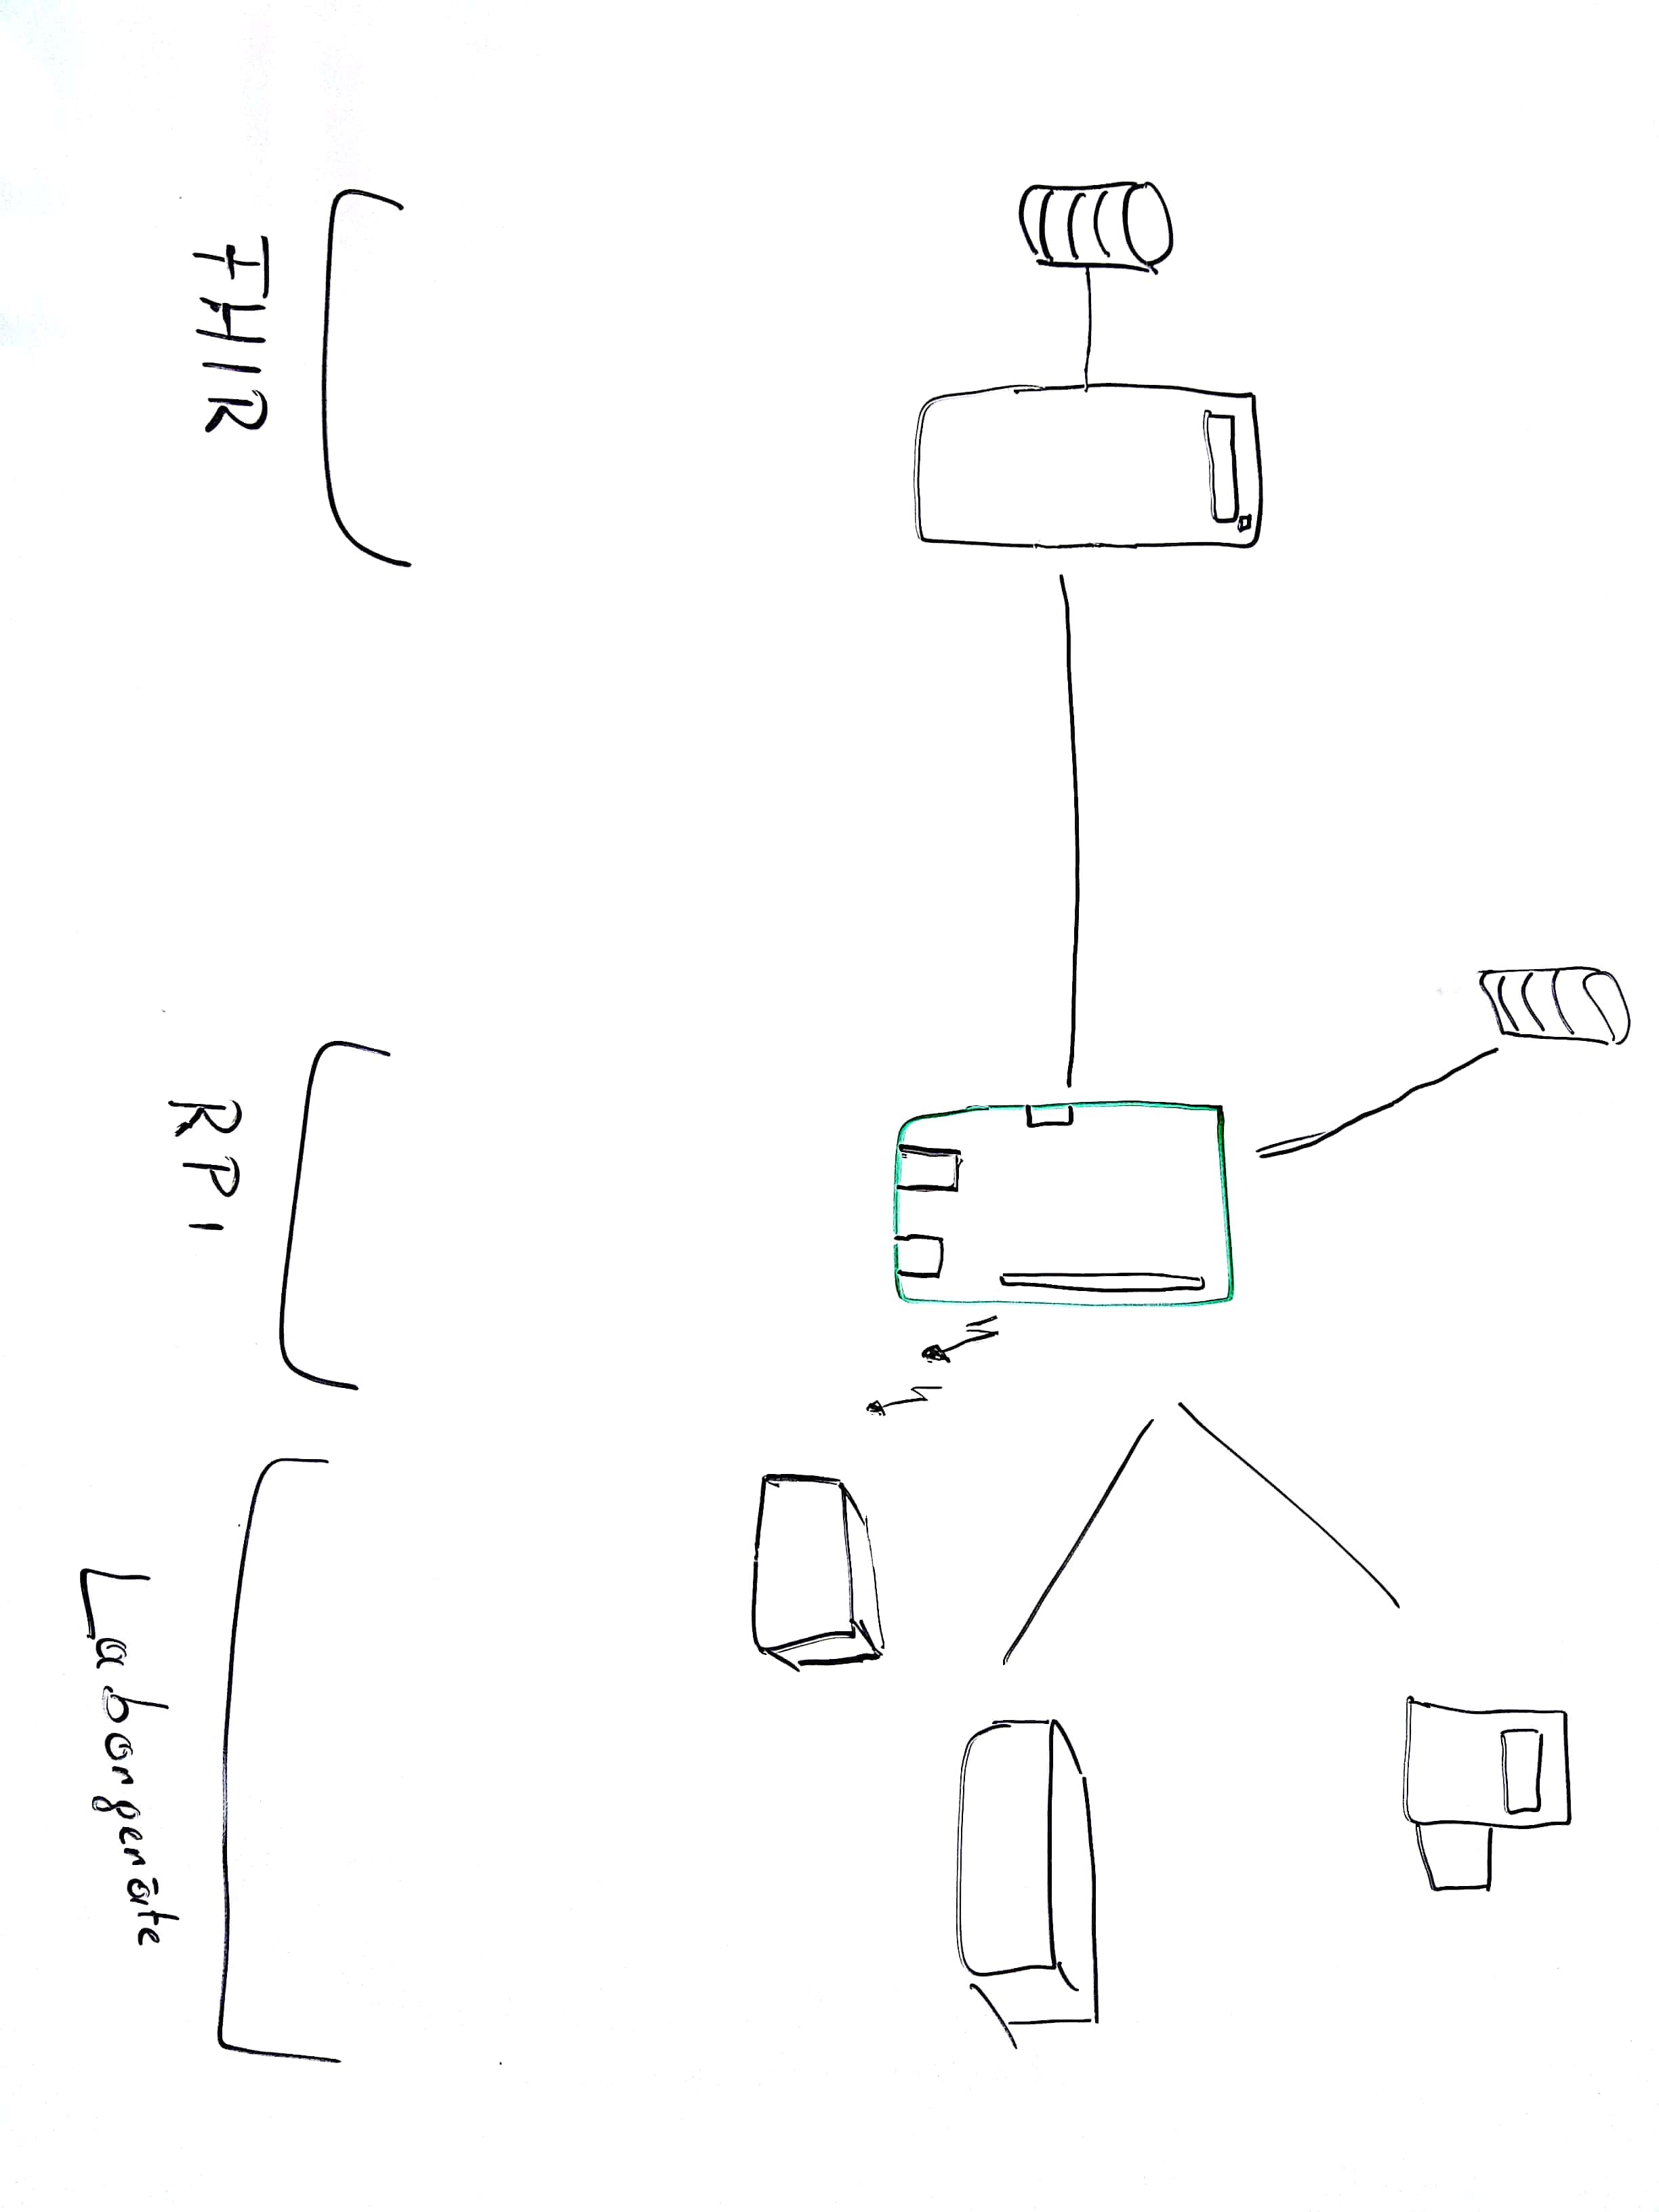 FHIR
RPi
Laborgeräte